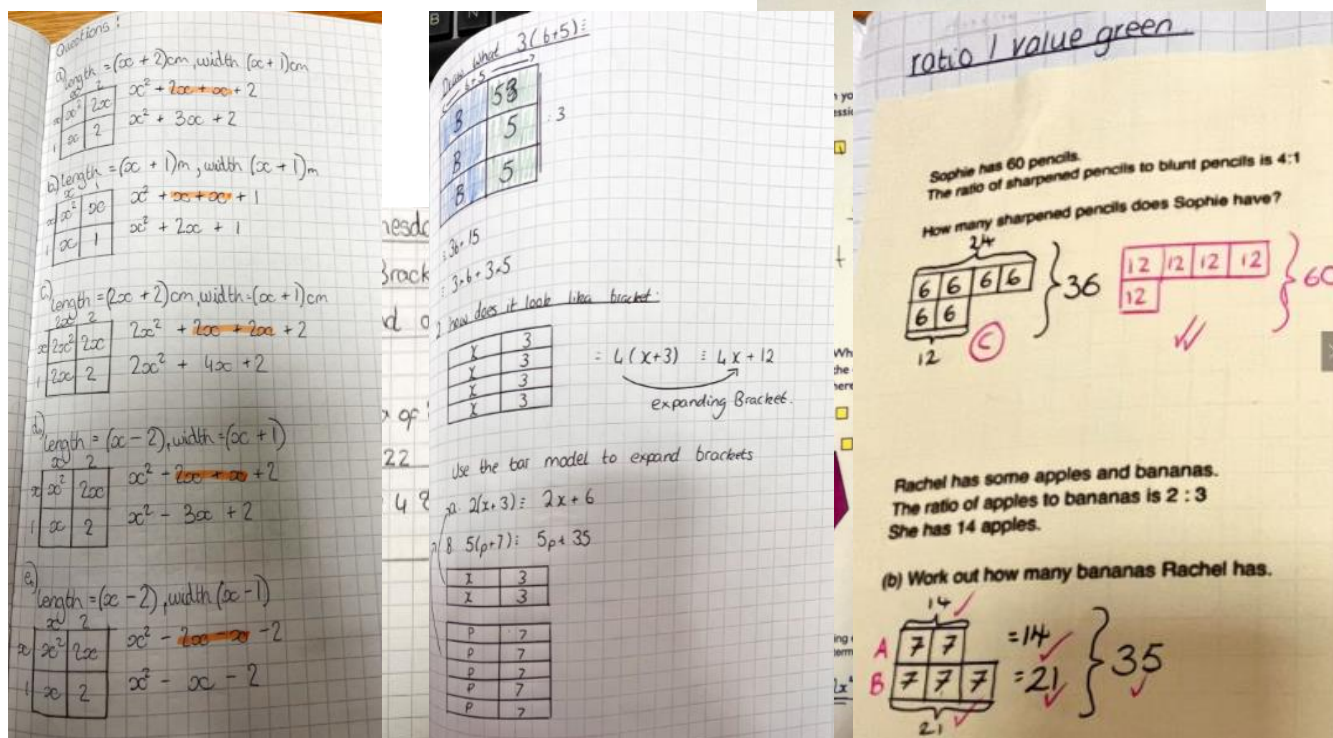 Questions!
a) length = (x + 2)cm, width (x + 1)cm
x 2
x x² 2x
1 x 2
x² + 2x + x + 2
x² + 3x + 2
b) length = (x + 1)m, width (x + 1)m
x 1
x x² x
1 x 1
x² + x + x + 1
x² + 2x + 1
c) length = (2x + 2)cm, width = (x + 1)cm
2x 2
x 2x² 2x
1 2x 2
2x² + 2x + 2x + 2
2x² + 4x + 2
d) length = (x - 2), width = (x + 1)
x 2
x x² 2x
1 x 2
x² - 2x + x + 2
x² - 3x + 2
e) length = (x - 2), width (x - 1)
x 2
x x² 2x
1 x 2
x² - 2x - x - 2
x² - x - 2
esd
Brack
22
48
B N M
Draw What 3(b+5) =
b+5
B 5
B 5
B 5
3
= 3b+15
= 3×b+3×5
2 how does it look like bracket:
x 3
x 3
x 3
x 3
= 4(x+3) = 4x+12
expanding Bracket.
Use the bar model to expand brackets
a. 2(x+3) = 2x+6
B 5(p+7) = 5p+35
x 3
x 3
p 7
p 7
p 7
p 7
p 7
ratio 1 value green
Sophie has 60 pencils.
The ratio of sharpened pencils to blunt pencils is 4:1
How many sharpened pencils does Sophie have?
24
6 6 6 6
6 6
36
12
C
12 12 12 12
12
60
Rachel has some apples and bananas.
The ratio of apples to bananas is 2 : 3
She has 14 apples.
(b) Work out how many bananas Rachel has.
14
A 7 7 =14
B 7 7 7 =21
35
21